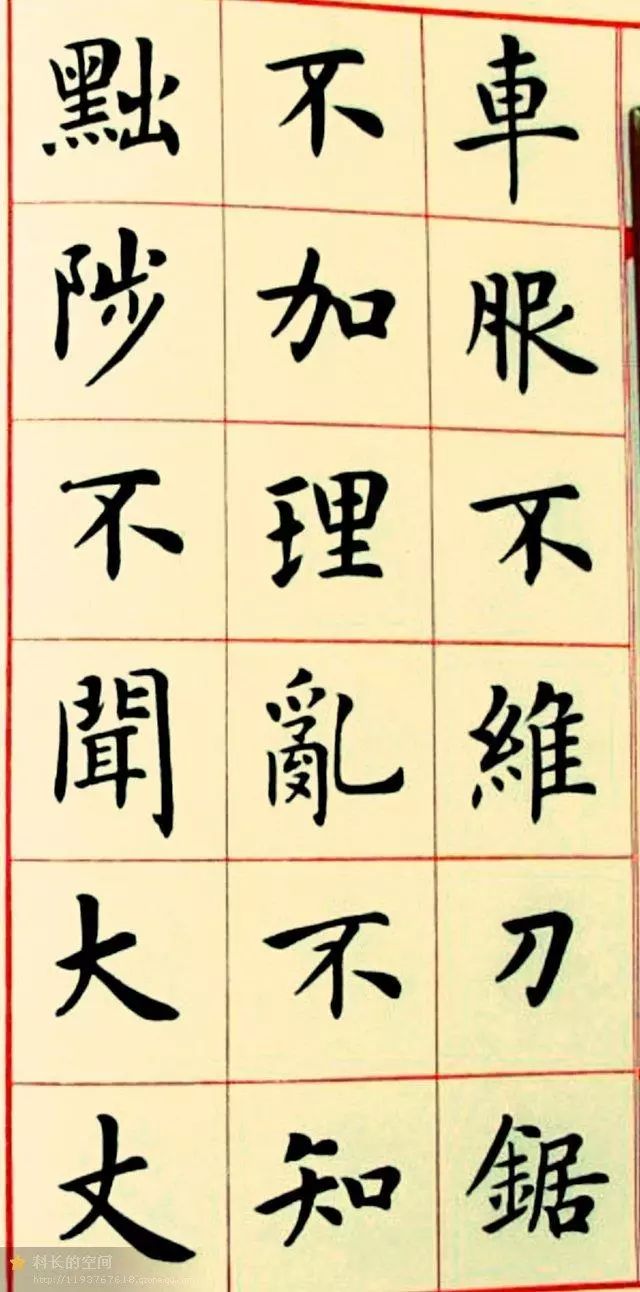 車服不維刀鋸
不加理亂不知
黜陟不聞大丈
科长的空间
http://1193767618.qzone.qq.com